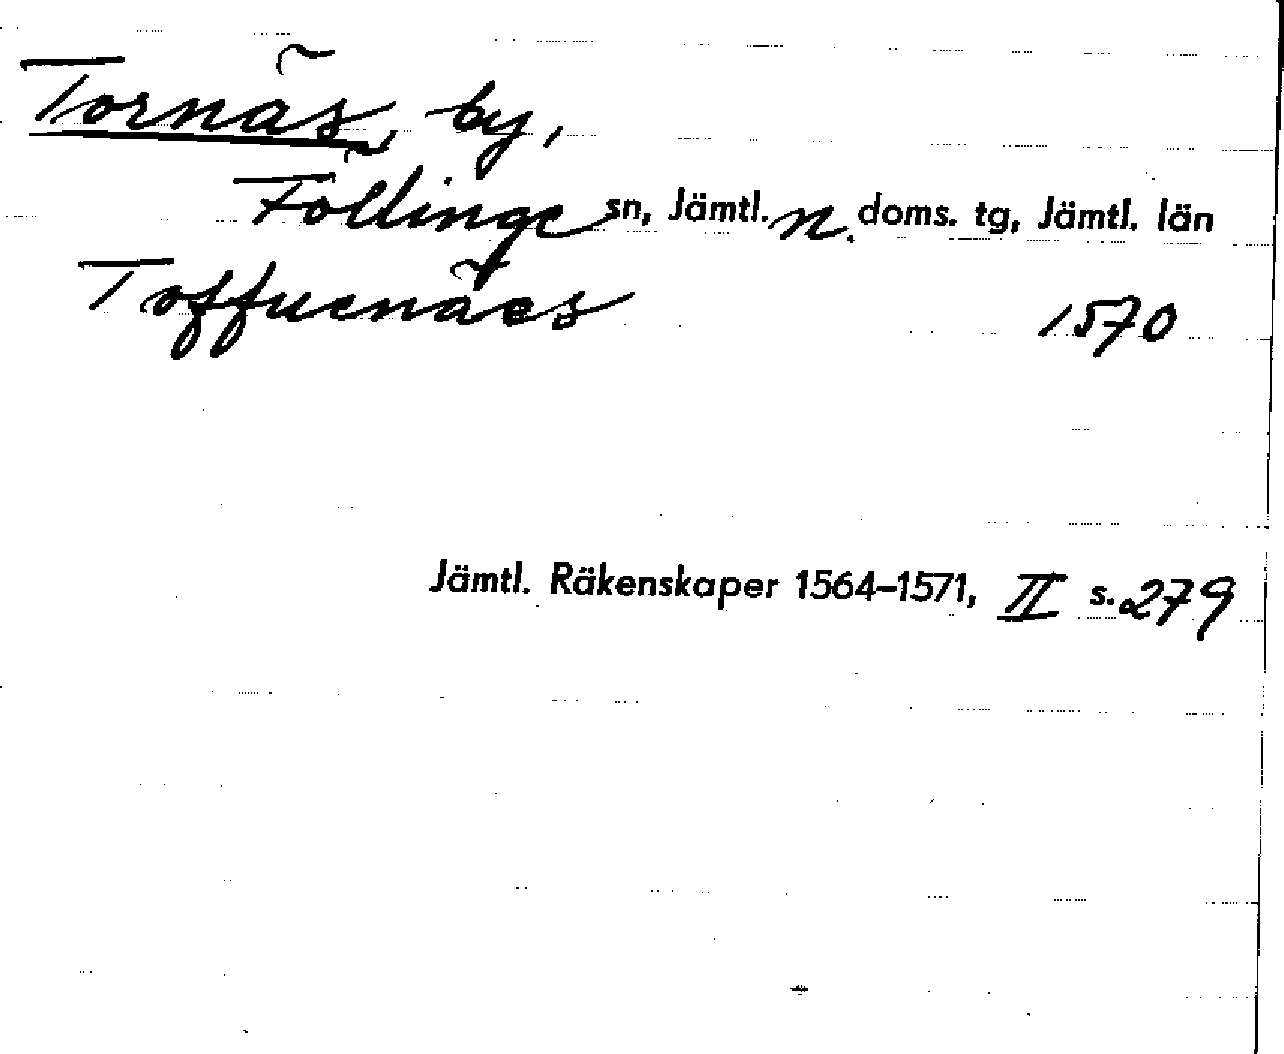 Tornäs, by,
Föllinge sn, Jämtl. n. doms. tg, Jämtl. län
Toffuenäes 1570
Jämtl. Räkenskaper 1564–1571, II s. 279